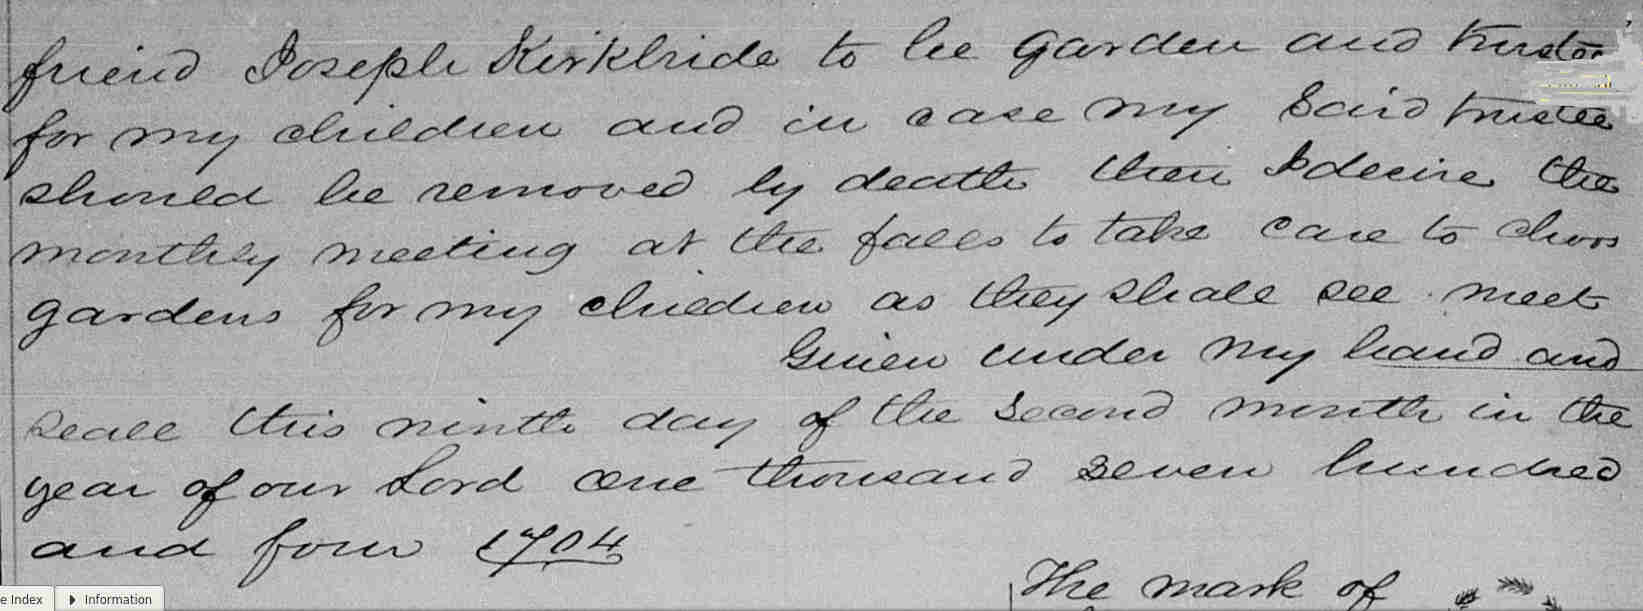 friend Joseph Kirkbride to be garden and trustor
for my children and in case my Said trustee
should be removed by death then I desire the
monthly meeting at the falls to take care to choos
gardens for my children as they shall see meet
Given under my hand and
seall this ninth day of the second month in the
year of our Lord one thousand seven hundred
and four 1704
The mark of
e Index
Information